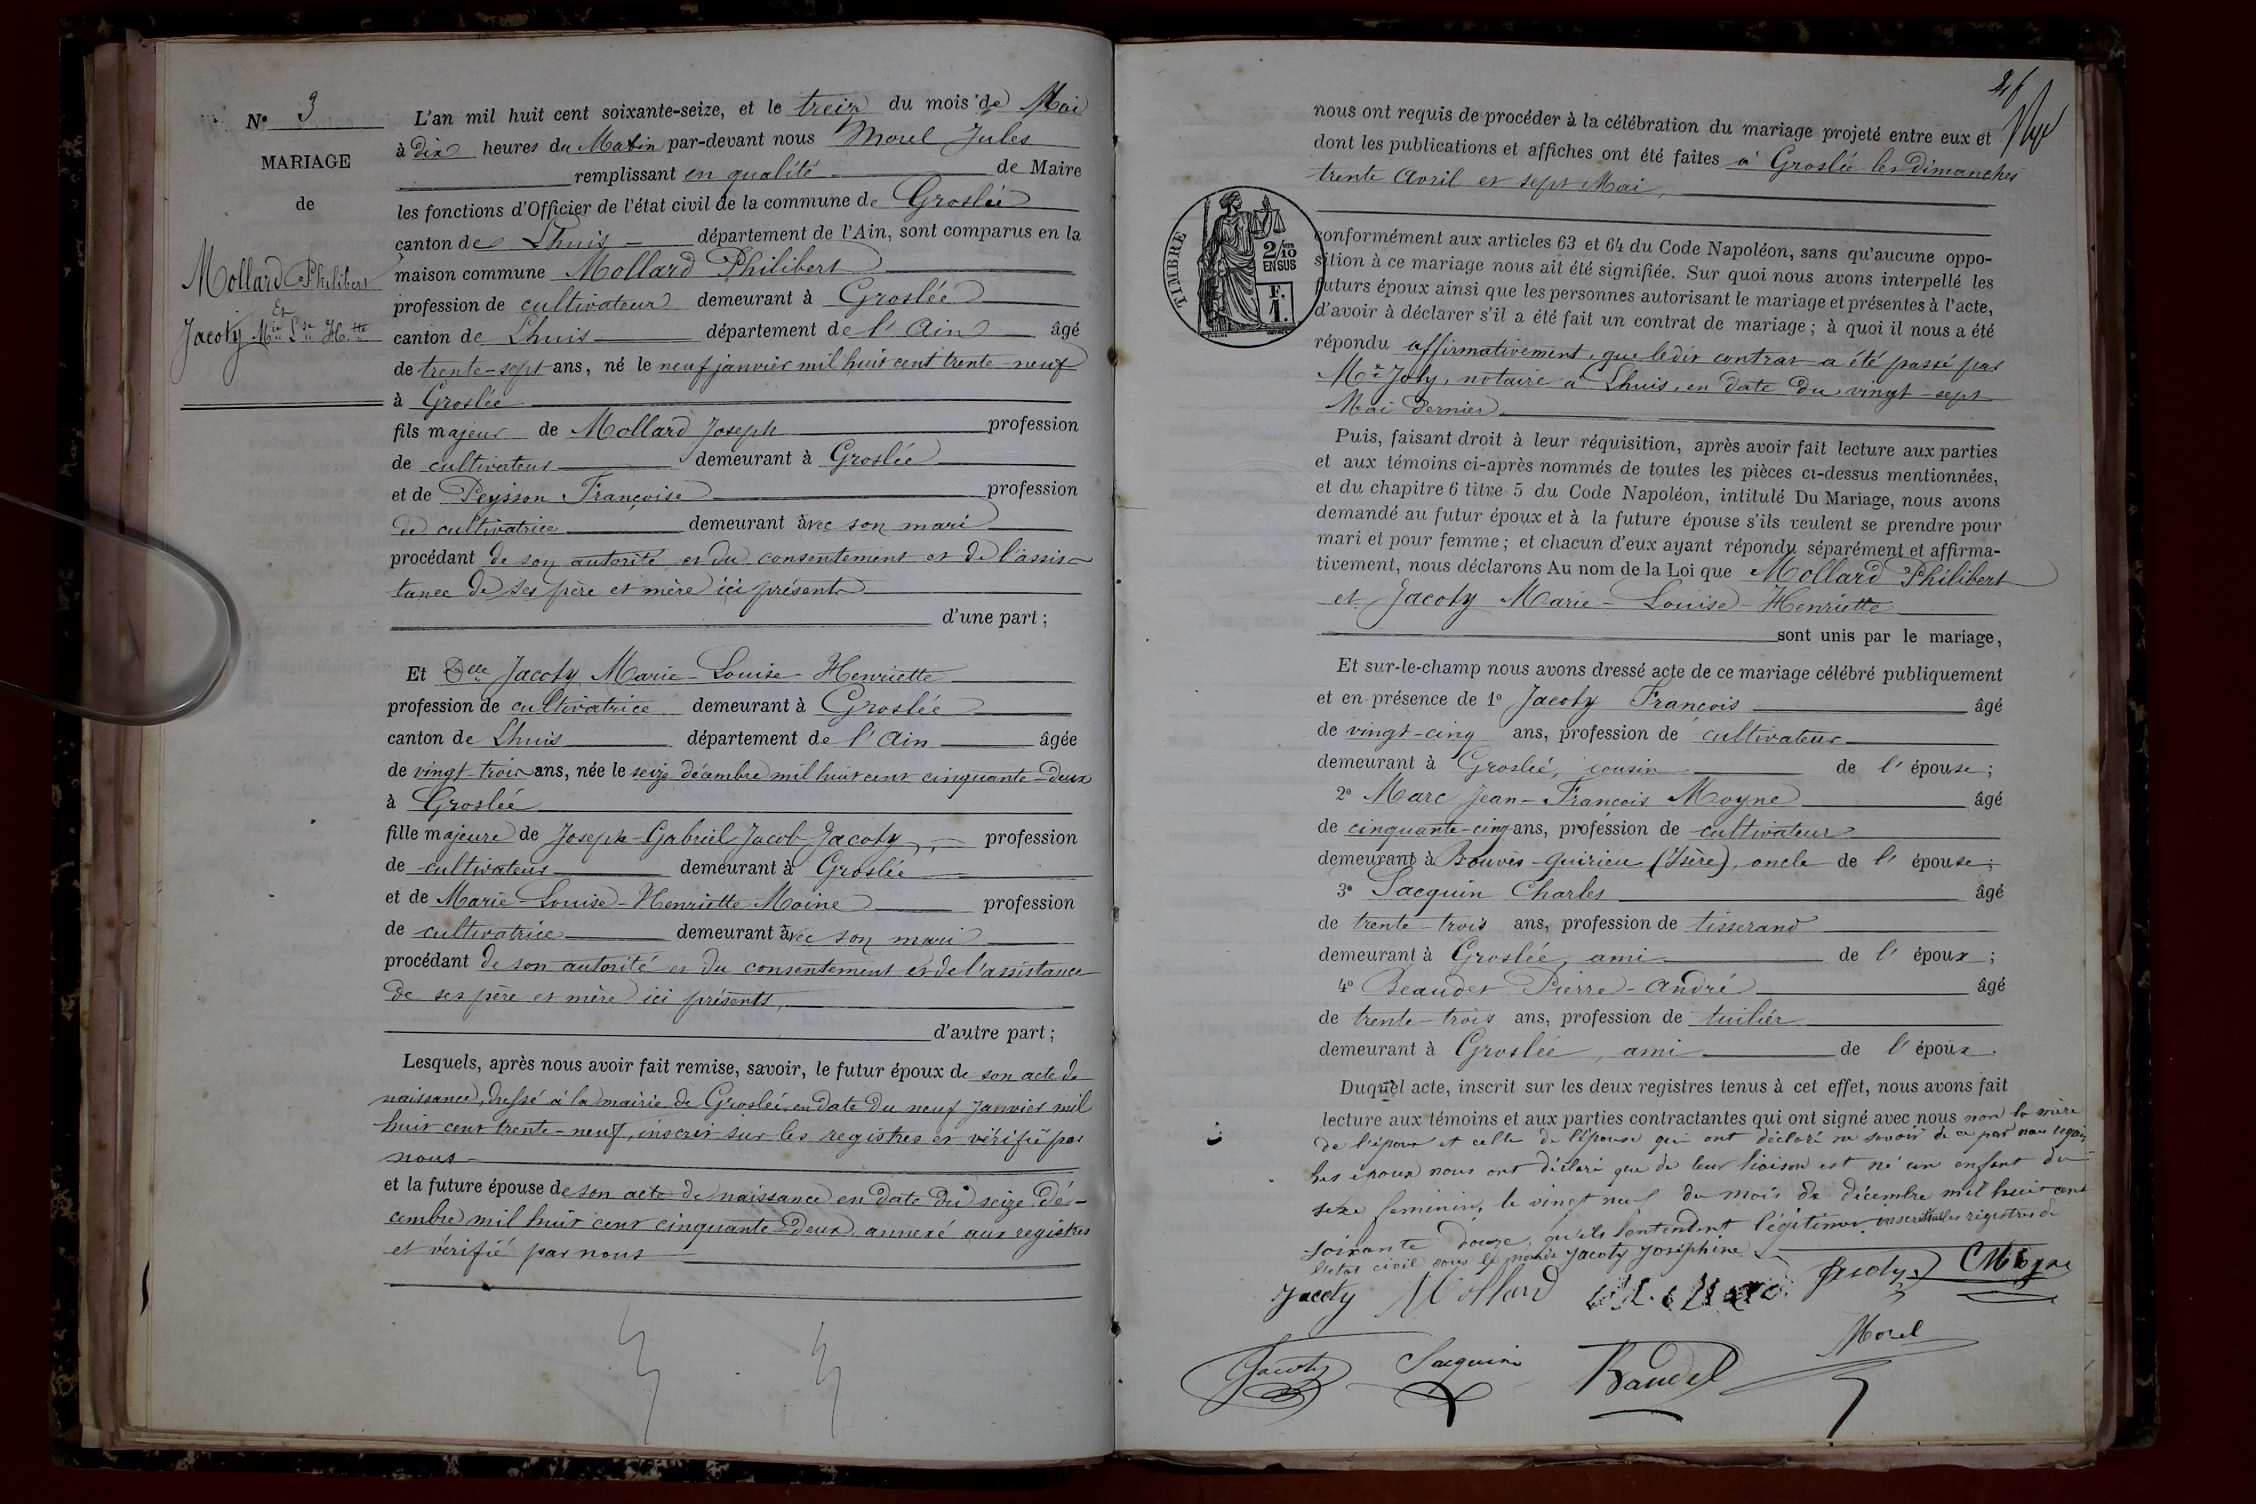 N° 3
MARIAGE
de
Mollard Philibert
Et
Jacoty Mie Lse Htte
L'an mil huit cent soixante-seize, et le treize du mois de Mai
à dix heures du Matin par-devant nous Morel Jules
remplissant en qualité de Maire
les fonctions d'Officier de l'état civil de la commune de Groslée
canton de Lhuis département de l'Ain, sont comparus en la
maison commune Mollard Philibert
profession de cultivateur demeurant à Groslée
canton de Lhuis département de l'Ain âgé
de trente-sept ans, né le neuf janvier mil huit cent trente-neuf
à Groslée
fils majeur de Mollard Joseph profession
de cultivateur demeurant à Groslée
et de Peysson Françoise profession
de cultivatrice demeurant avec son mari
procédant de son autorité et du consentement et de l'assis-
tance de ses père et mère ici présents
d'une part ;
Et Delle Jacoty Marie-Louise-Henriette
profession de cultivatrice demeurant à Groslée
canton de Lhuis département de l'Ain âgée
de vingt-trois ans, née le seize décembre mil huit cent cinquante-deux
à Groslée
fille majeure de Joseph-Gabriel-Jacob Jacoty, profession
de cultivateur demeurant à Groslée
et de Marie Louise-Henriette Moine profession
de cultivatrice demeurant avec son mari
procédant de son autorité et du consentement et de l'assistance
de ses père et mère ici présents,
d'autre part ;
Lesquels, après nous avoir fait remise, savoir, le futur époux de son acte de
naissance, dressé à la mairie de Groslée, en date du neuf Janvier mil
huit cent trente-neuf, inscrit sur les registres et vérifié par
nous
et la future épouse de son acte de naissance en date du seize dé-
cembre mil huit cent cinquante-deux annexé aux registres
et vérifié par nous
nous ont requis de procéder à la célébration du mariage projeté entre eux et
dont les publications et affiches ont été faites à Groslée les dimanches
trente Avril et sept Mai,
TIMBRE
2/10
EN SUS
F.
1.
conformément aux articles 63 et 64 du Code Napoléon, sans qu'aucune oppo-
sition à ce mariage nous ait été signifiée. Sur quoi nous avons interpellé les
futurs époux ainsi que les personnes autorisant le mariage et présentes à l'acte,
d'avoir à déclarer s'il a été fait un contrat de mariage ; à quoi il nous a été
répondu affirmativement, que ledit contrat a été passé par
Mr Joly, notaire à Lhuis, en date du vingt-sept
Mai dernier
Puis, faisant droit à leur réquisition, après avoir fait lecture aux parties
et aux témoins ci-après nommés de toutes les pièces ci-dessus mentionnées,
et du chapitre 6 titre 5 du Code Napoléon, intitulé Du Mariage, nous avons
demandé au futur époux et à la future épouse s'ils veulent se prendre pour
mari et pour femme ; et chacun d'eux ayant répondu séparément et affirma-
tivement, nous déclarons Au nom de la Loi que Mollard Philibert
et Jacoty Marie-Louise-Henriette
sont unis par le mariage,
Et sur-le-champ nous avons dressé acte de ce mariage célébré publiquement
et en présence de 1° Jacoty François âgé
de vingt-cinq ans, profession de cultivateur
demeurant à Groslée, cousin de l'épouse ;
2° Marc Jean-François Moyne âgé
de cinquante-cinq ans, profession de cultivateur
demeurant à Bouvès-quirieu (Isère), oncle de l'épouse ;
3° Jacquin Charles âgé
de trente-trois ans, profession de tisserand
demeurant à Groslée, ami de l'époux ;
4° Beaudet Pierre-André âgé
de trente-trois ans, profession de tuilier
demeurant à Groslée, ami de l'époux.
Duquel acte, inscrit sur les deux registres tenus à cet effet, nous avons fait
lecture aux témoins et aux parties contractantes qui ont signé avec nous non la mère
de l'époux et celle de l'épouse qui ont déclaré ne savoir de ce par nous requis,
Les époux nous ont déclaré que de leur liaison est né un enfant du
sexe féminin, le vingt neuf du mois de décembre mil huit cent
soixante douze, qu'ils entendent légitimer inscrit sur les registres de
l'état civil sous le nom de Jacoty Joséphine
Jacoty Mollard Jacoty CMoyne
Jacoty Jacquin Baudet Morel